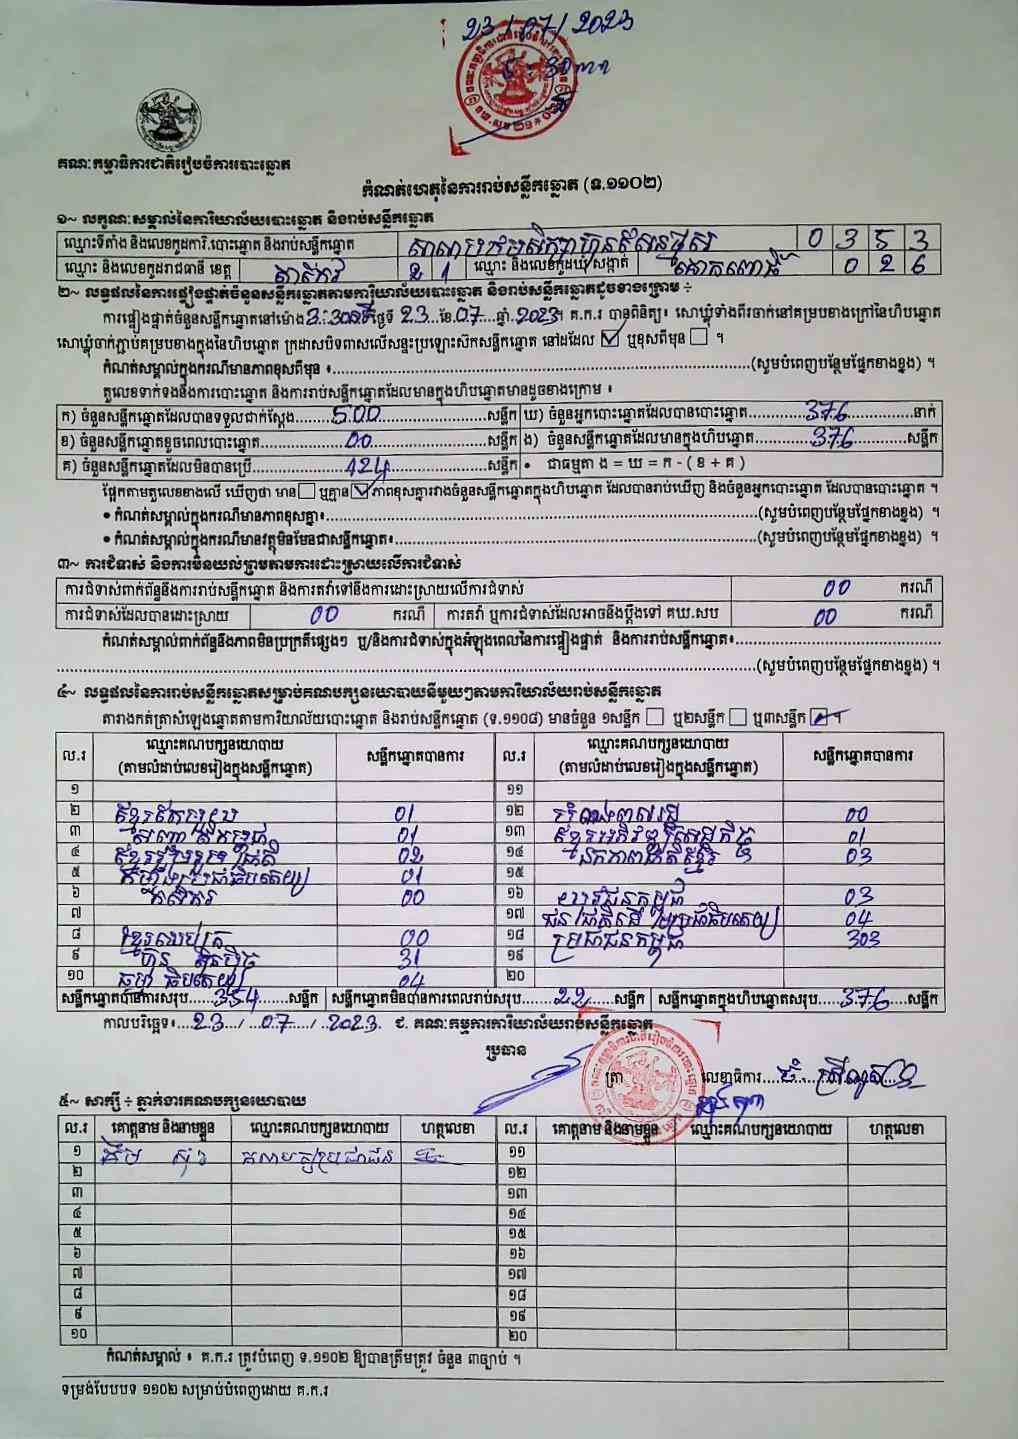 23/07/2023
គណៈកម្មាធិការជាតិរៀបចំការបោះឆ្នោត
កំណត់ហេតុនៃការរាប់សន្លឹកឆ្នោត (ទ.១១០២)
១~ លក្ខណៈសម្គាល់នៃការិយាល័យបោះឆ្នោត និងរាប់សន្លឹកឆ្នោត
ឈ្មោះទីតាំង និងលេខកូដការិ.បោះឆ្នោត និងរាប់សន្លឹកឆ្នោត 0 3 5 3
ឈ្មោះ និងលេខកូដរាជធានី ខេត្ត តាកែវ 2 1 ឈ្មោះ និងលេខកូដឃុំ សង្កាត់ គោកពោធិ៍ 0 2 6
២~ លទ្ធផលនៃការផ្ទៀងផ្ទាត់ចំនួនសន្លឹកឆ្នោតតាមការិយាល័យបោះឆ្នោត និងរាប់សន្លឹកឆ្នោតដូចខាងក្រោម ÷
ការផ្ទៀងផ្ទាត់ចំនួនសន្លឹកឆ្នោតនៅម៉ោង 3:30 ថ្ងៃទី 23 ខែ 07 ឆ្នាំ 2023 ។ គ.ក.រ បានពិនិត្យ៖ សោឃ្លុំទាំងពីរចាក់នៅគម្របខាងក្រៅនៃហិបឆ្នោត
សោឃ្លុំចាក់ភ្ជាប់គម្របខាងក្នុងនៃហិបឆ្នោត ក្រដាសបិទពាសលើសន្ទះប្រឡោះស៊កសន្លឹកឆ្នោត នៅដដែល ☑ ឬខុសពីមុន ☐ ។
កំណត់សម្គាល់ក្នុងករណីមានភាពខុសពីមុន ៖ (សូមបំពេញបន្ថែមផ្នែកខាងខ្នង) ។
តួលេខទាក់ទងនឹងការបោះឆ្នោត និងការរាប់សន្លឹកឆ្នោតដែលមានក្នុងហិបឆ្នោតមានដូចខាងក្រោម ៖
ក) ចំនួនសន្លឹកឆ្នោតដែលបានទទួលជាក់ស្តែង 500 សន្លឹក ឃ) ចំនួនអ្នកបោះឆ្នោតដែលបានបោះឆ្នោត 376 នាក់
ខ) ចំនួនសន្លឹកឆ្នោតខូចពេលបោះឆ្នោត 00 សន្លឹក ង) ចំនួនសន្លឹកឆ្នោតដែលមានក្នុងហិបឆ្នោត 376 សន្លឹក
គ) ចំនួនសន្លឹកឆ្នោតដែលមិនបានប្រើ 124 សន្លឹក • ជាធម្មតា ង = ឃ = ក - ( ខ + គ )
ផ្អែកតាមតួលេខខាងលើ ឃើញថា មាន ☐ ឬគ្មាន ☑ ភាពខុសគ្នារវាងចំនួនសន្លឹកឆ្នោតក្នុងហិបឆ្នោត ដែលបានរាប់ឃើញ និងចំនួនអ្នកបោះឆ្នោត ដែលបានបោះឆ្នោត ។
• កំណត់សម្គាល់ក្នុងករណីមានភាពខុសគ្នា៖ (សូមបំពេញបន្ថែមផ្នែកខាងខ្នង) ។
• កំណត់សម្គាល់ក្នុងករណីមានវត្ថុមិនមែនជាសន្លឹកឆ្នោត៖ (សូមបំពេញបន្ថែមផ្នែកខាងខ្នង) ។
៣~ ការជំទាស់ និងការមិនយល់ព្រមតាមការដោះស្រាយលើការជំទាស់
ការជំទាស់ពាក់ព័ន្ធនឹងការរាប់សន្លឹកឆ្នោត និងការតវ៉ាទៅនឹងការដោះស្រាយលើការជំទាស់ 00 ករណី
ការជំទាស់ដែលបានដោះស្រាយ 00 ករណី ការតវ៉ា ឬការជំទាស់ដែលអាចនឹងប្តឹងទៅ គឃ.សប 00 ករណី
កំណត់សម្គាល់ពាក់ព័ន្ធនឹងភាពមិនប្រក្រតីផ្សេងៗ ឬ/និងការជំទាស់ក្នុងអំឡុងពេលនៃការផ្ទៀងផ្ទាត់ និងការរាប់សន្លឹកឆ្នោត៖
(សូមបំពេញបន្ថែមផ្នែកខាងខ្នង) ។
៤~ លទ្ធផលនៃការរាប់សន្លឹកឆ្នោតសម្រាប់គណបក្សនយោបាយនីមួយៗតាមការិយាល័យរាប់សន្លឹកឆ្នោត
តារាងកត់ត្រាសំឡេងឆ្នោតតាមការិយាល័យបោះឆ្នោត និងរាប់សន្លឹកឆ្នោត (ទ.១១០៨) មានចំនួន ១សន្លឹក ☐ ឬ២សន្លឹក ☐ ឬ៣សន្លឹក ☑ ។
ល.រ ឈ្មោះគណបក្សនយោបាយ (តាមលំដាប់លេខរៀងក្នុងសន្លឹកឆ្នោត) សន្លឹកឆ្នោតបានការ ល.រ ឈ្មោះគណបក្សនយោបាយ (តាមលំដាប់លេខរៀងក្នុងសន្លឹកឆ្នោត) សន្លឹកឆ្នោតបានការ
១ ១១
២ ខ្មែរឯកភាព 01 ១២ 00
៣ 01 ១៣ ខ្មែរអភិវឌ្ឍន៍សេដ្ឋកិច្ច 01
៤ ខ្មែររួបរួមជាតិ 02 ១៤ ឯកភាពជាតិខ្មែរ 03
៥ កម្លាំងប្រជាធិបតេយ្យ 01 ១៥
៦ កសិករ 00 ១៦ យុវជនកម្ពុជា 03
៧ ១៧ ជនជាតិដើមប្រជាធិបតេយ្យ 04
៨ 00 ១៨ ប្រជាជនកម្ពុជា 303
៩ ហ៊្វុនស៊ិនប៉ិច 31 ១៩
១០ ធម្មាធិបតេយ្យ 04 ២០
សន្លឹកឆ្នោតបានការសរុប 354 សន្លឹក សន្លឹកឆ្នោតមិនបានការពេលរាប់សរុប 22 សន្លឹក សន្លឹកឆ្នោតក្នុងហិបឆ្នោតសរុប 376 សន្លឹក
កាលបរិច្ឆេទ៖ 23 / 07 / 2023 ជ. គណៈកម្មការការិយាល័យរាប់សន្លឹកឆ្នោត
ប្រធាន
ត្រា លេខាធិការ
៥~ សាក្សី ÷ ភ្នាក់ងារគណបក្សនយោបាយ
ល.រ គោត្តនាម និងនាមខ្លួន ឈ្មោះគណបក្សនយោបាយ ហត្ថលេខា ល.រ គោត្តនាម និងនាមខ្លួន ឈ្មោះគណបក្សនយោបាយ ហត្ថលេខា
១ គណបក្សប្រជាជន ១១
២ ១២
៣ ១៣
៤ ១៤
៥ ១៥
៦ ១៦
៧ ១៧
៨ ១៨
៩ ១៩
១០ ២០
កំណត់សម្គាល់ ៖ គ.ក.រ ត្រូវបំពេញ ទ.១១០២ ឱ្យបានត្រឹមត្រូវ ចំនួន ៣ច្បាប់ ។
ទម្រង់បែបបទ ១១០២ សម្រាប់បំពេញដោយ គ.ក.រ